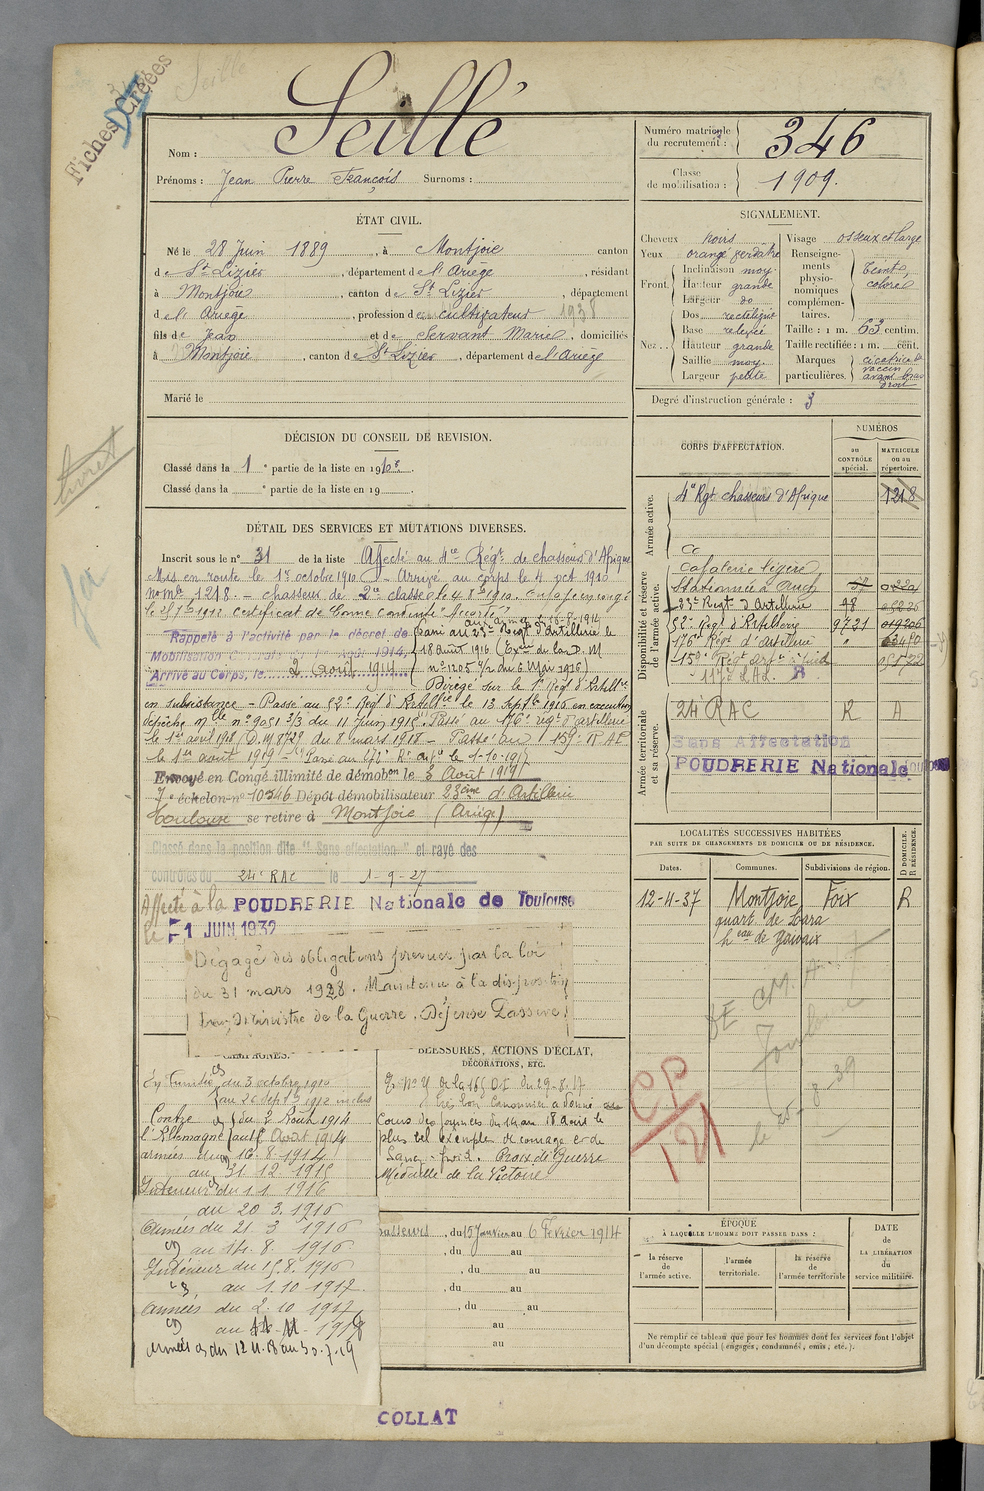 Fiches Créées
Seillé
Nom : Seillé
Prénoms : Jean Pierre François Surnoms :
Numéro matricule du recrutement : 346
Classe de mobilisation : 1909.
ÉTAT CIVIL.
Né le 28 Juin 1889, à Montjoie canton
de St Lizier, département de l'Ariège, résidant
à Montjoie, canton de St Lizier, département
de l'Ariège, profession de cultivateur 1938
fils de Jean et de Servant Marie, domiciliés
à Montjoie, canton de St Lizier, département de l'Ariège
Marié le
SIGNALEMENT.
Cheveux noirs
Yeux orangé verdâtre
Front. Inclinaison moy.
Hauteur grande
Largeur do
Nez. Dos rectiligne
Base relevée
Hauteur grande
Saillie moy.
Largeur petite
Visage osseux et large
Renseignements physionomiques complémentaires. Teint coloré
Taille : 1 m. 63 centim.
Taille rectifiée : 1 m. cent.
Marques particulières. cicatrice
vaccin
avant bras
droit
Degré d'instruction générale : 3
DÉCISION DU CONSEIL DE REVISION.
Classé dans la 1e partie de la liste en 1910
Classé dans la e partie de la liste en 19
DÉTAIL DES SERVICES ET MUTATIONS DIVERSES.
Inscrit sous le n° 31 de la liste Affecté au 4e Régt de chasseurs d'Afrique
Mis en route le 1er octobre 1910 - Arrivé au corps le 4 oct 1910
n° mle 1218. - chasseur de 2e classe le 4 8bre 1910. Envoyé en congé
le 25 7bre 1912 Certificat de Bonne Conduite "Accordé"
aux armées 16-8-1914
Rappelé à l'activité par le décret de
Mobilisation Générale du 1er Août 1914,
Arrivé au Corps, le 2 Août 1914
Passé au 23e Regt d'Artillerie le
18 août 1916 (Exon de la D.M
n° 1205 6/2 du 6 Mai 1916)
Dirigé sur le 1er Régt d'Artillie
en subsistance - Passé au 52e Régt d'Artillie le 13 Septbre 1916 en exécution
dépêche mlle n° 9051 3/3 du 11 juin 1915. Passé au 176e régt d'artillerie
le 1er avril 1918 (D.M 8729 du 8 mars 1918 - Passé au 159e R A P
le 1er août 1919 - Passé au 270e R. artie le 1-10-1917
Envoyé en Congé illimité de démobon le 3 Août 1919
7e échelon n° 10546 Dépôt démobilisateur 23ème d'Artillerie
Toulouse se retire à Montjoie (Ariège)
Classé dans la position dite "Sans affectation" et rayé des
contrôles du 24e RAC le 1-9-27
Affecté à la POUDRERIE Nationale de Toulouse
le 1 JUIN 1932
Dégagé des obligations prévues par la loi
du 31 mars 1928. Maintenu à la disposition
du Ministre de la Guerre. Défense Passive.
CORPS D'AFFECTATION.
NUMÉROS
au CONTRÔLE spécial.
MATRICULE ou au répertoire.
Armée active.
4e Rgt chasseurs d'Afrique 1218
Disponibilité et réserve de l'armée active.
Cavalerie légère
Stationnée à Auch
23e Regt d'Artillerie 48
52e Régt d'Artillerie 9731 019206
176e Régt d'artillerie
159e Régt artie à pied
117e L.A.L. R
Armée territoriale et sa réserve.
24 RAC R A
Sans Affectation
POUDRERIE Nationale Toulouse
LOCALITÉS SUCCESSIVES HABITÉES
PAR SUITE DE CHANGEMENTS DE DOMICILE OU DE RÉSIDENCE.
Dates. Communes. Subdivisions de région. D DOMICILE. R RÉSIDENCE.
12-4-37 Montjoie Foix R
quart. de Lara
heau de Gavaix
Toulouse
le 25-8-39
CP
121
CAMPAGNES.
En Tunisie du 3 octobre 1910
au 26 Septbre 1912 inclus
Contre l'Allemagne du 2 Août 1914
au 15 Août 1914
armées du 16-8-1914
au 31 12 1915
Intérieur du 1 1 1916
au 20 3 1916
Armées du 21. 3 1916
au 14. 8. 1916
Intérieur du 15.8.1916
au 1.10.1917.
Armées du 2.10 1917
au 11-11-1918
Armées du 12.11.18 au 30.7.19
BLESSURES, ACTIONS D'ÉCLAT,
DÉCORATIONS, ETC.
du 29-8-17
très bon Canonnier a donné au
Cours des journées du 14 au 18 août le
plus bel exemple de courage et de
Sang-froid. Croix de Guerre
Médaille de la Victoire
du 15 Janvier au 6 Février 1914
, du au
, du au
, du au
, du au
au
au
ÉPOQUE
À LAQUELLE L'HOMME DOIT PASSER DANS :
la réserve de l'armée active.
l'armée territoriale.
la réserve de l'armée territoriale
DATE DE LA LIBÉRATION du service militaire.
Ne remplir ce tableau que pour les hommes dont les services font l'objet
d'un décompte spécial (engagés, condamnés, omis, etc.).
COLLAT